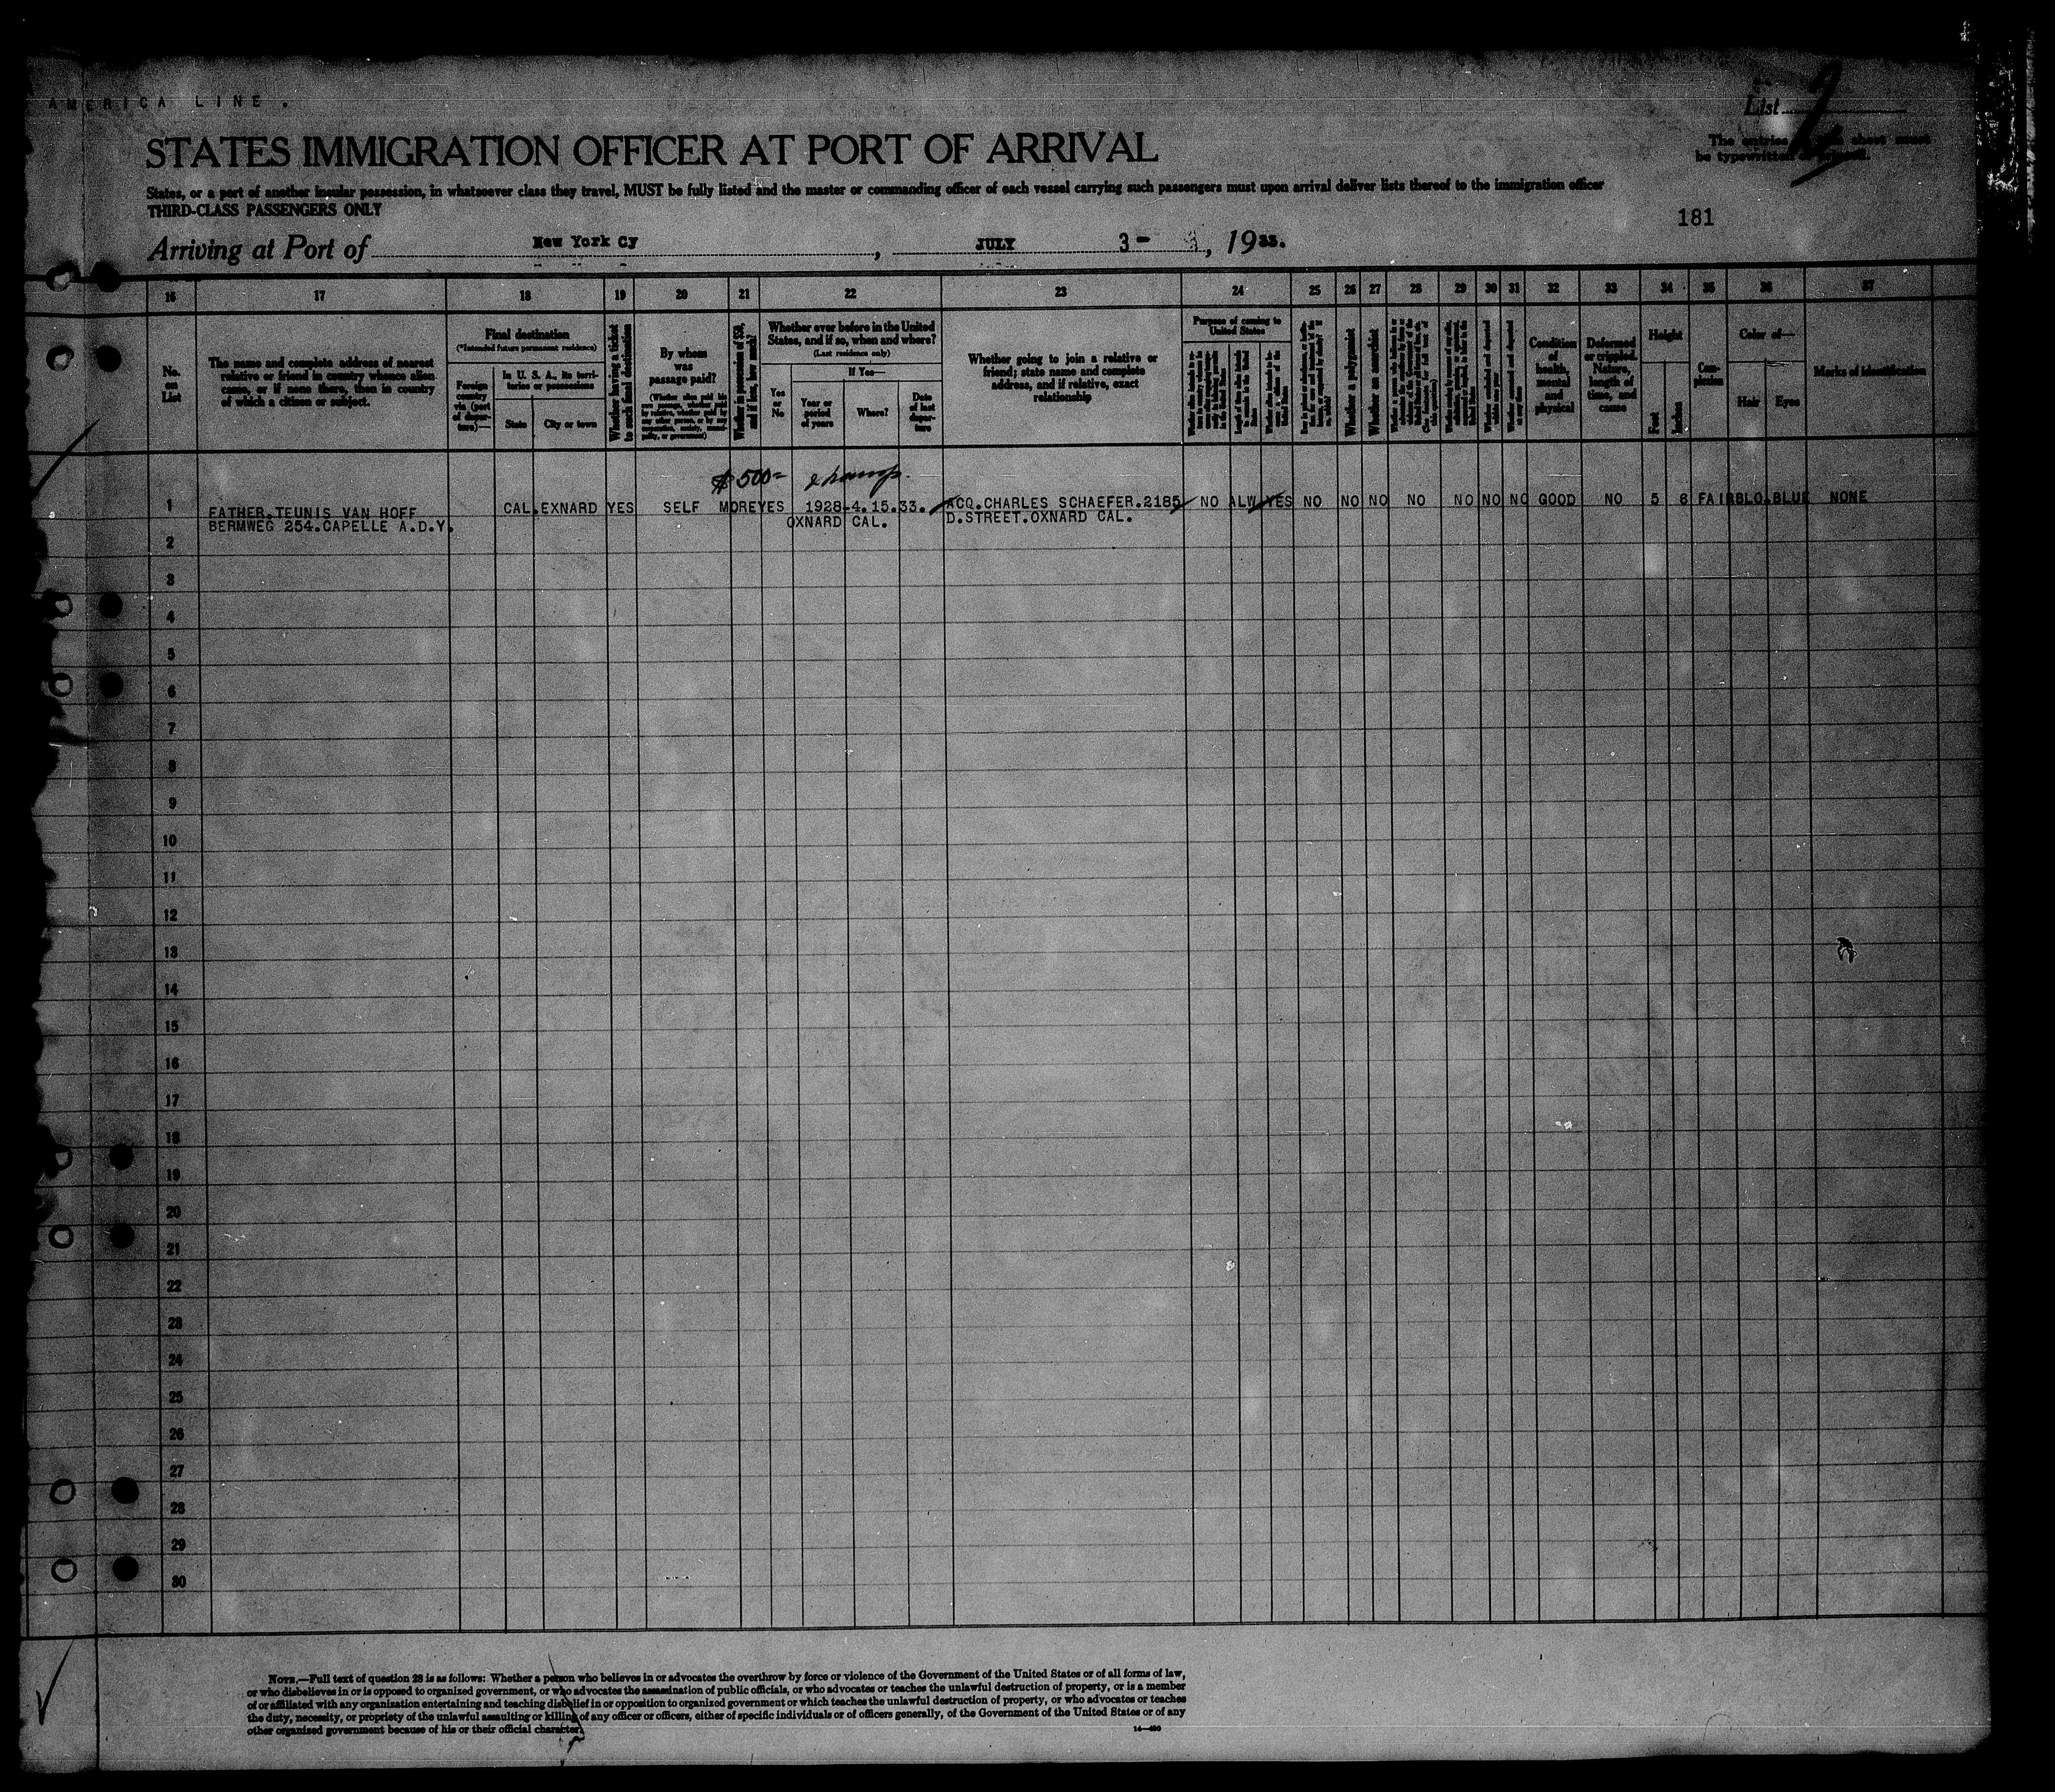 AMERICA LINE.
List
STATES IMMIGRATION OFFICER AT PORT OF ARRIVAL
The entries sheet must
be typewritten or
States, or a port of another insular possession, in whatsoever class they travel, MUST be fully listed and the master or commanding officer of each vessel carrying such passengers must upon arrival deliver lists thereof to the immigration officer
THIRD-CLASS PASSENGERS ONLY
181
Arriving at Port of New York Cy, JULY 3-, 1933.
16 17 18 19 20 21 22 23 24 25 26 27 28 29 30 31 32 33 34 35 36 37
No. on List
The name and complete address of nearest relative or friend in country whence alien came, or if none there, then in country of which a citizen or subject.
Final destination
(*Intended future permanent residence)
Foreign country via (port of departure)—
In U. S. A., its territories or possessions
State
City or town
Whether having a ticket to such final destination
By whom was passage paid?
Whether in possession of $50, and if less, how much?
Whether ever before in the United States, and if so, when and where?
(Last residence only)
Yes or No
If Yes—
Year or period of years
Where?
Date of last departure
Whether going to join a relative or friend; state name and complete address, and if relative, exact relationship
Purpose of coming to United States
Whether a polygamist
Whether an anarchist
Condition of health, mental and physical
Deformed or crippled. Nature, length of time, and cause
Height
Feet
Inches
Complexion
Color of—
Hair
Eyes
Marks of identification
$500=
1 FATHER.TEUNIS VAN HOFF CAL.EXNARD YES SELF MORE YES 1928-4.15.33. ACQ.CHARLES SCHAEFER.2185 NO ALW YES NO NO NO NO NO NO NO GOOD NO 5 6 FAIR BLO.BLUE NONE
BERMWEG 254.CAPELLE A.D.Y. OXNARD CAL. D.STREET.OXNARD CAL.
2
3
4
5
6
7
8
9
10
11
12
13
14
15
16
17
18
19
20
21
22
23
24
25
26
27
28
29
30
NOTE.—Full text of question 28 is as follows: Whether a person who believes in or advocates the overthrow by force or violence of the Government of the United States or of all forms of law,
or who disbelieves in or is opposed to organized government, or who advocates the assassination of public officials, or who advocates or teaches the unlawful destruction of property, or is a member
of or affiliated with any organization entertaining and teaching disbelief in or opposition to organized government or which teaches the unlawful destruction of property, or who advocates or teaches
the duty, necessity, or propriety of the unlawful assaulting or killing of any officer or officers, either of specific individuals or of officers generally, of the Government of the United States or of any
other organized government because of his or their official character.
14—480